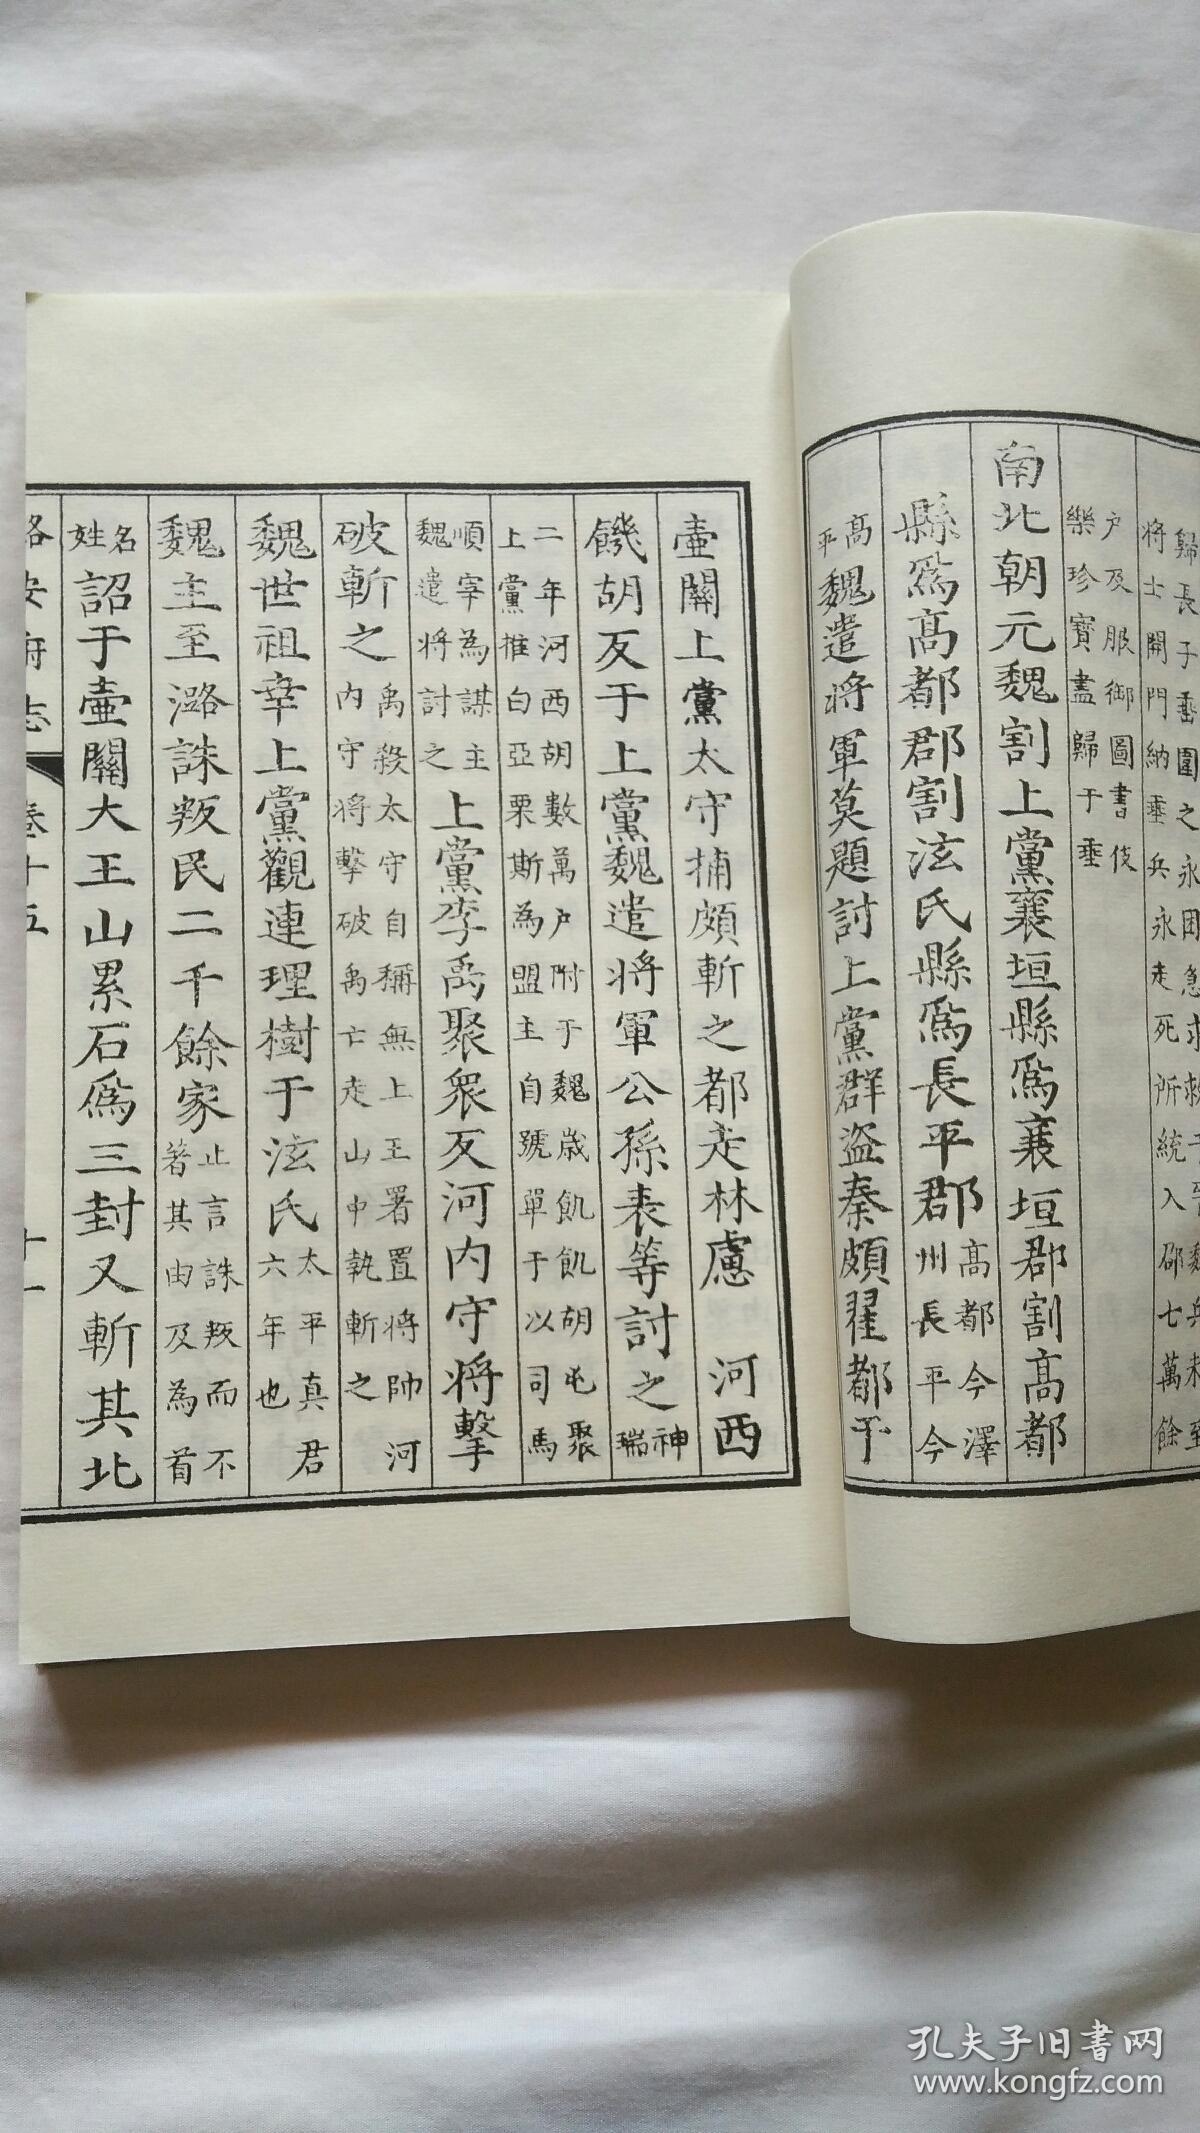 歸長子垂圍之永困急求救于
將士開門納垂兵永走死所統入郡七萬餘
户及服御圖書伎
樂珍寶盡歸于垂
南北朝元魏割上黨襄垣縣爲襄垣郡割高都
縣爲高都郡割泫氏縣爲長平郡高都今澤州長平今
高平魏遣將軍莫題討上黨群盗秦頗翟都于
壺關上黨太守捕頗斬之都走林慮 河西
饑胡反于上黨魏遣將軍公孫表等討之神瑞
二年河西胡數萬户附于魏歲飢飢胡屯聚
上黨推白亞栗斯為盟主自號單于以司馬
順宰為謀主
魏遣將討之上黨李禹聚衆反河内守將擊
破斬之禹殺太守自稱無上王署置將帥河
内守將擊破禹亡走山中執斬之
魏世祖幸上黨觀連理樹于泫氏太平真君
六年也
魏主至潞誅叛民二千餘家止言誅叛而不
著其由及為首
名姓詔于壺關大王山累石爲三封又斬其北
潞安府志 卷十五 十一
孔夫子旧书网
www.kongfz.com